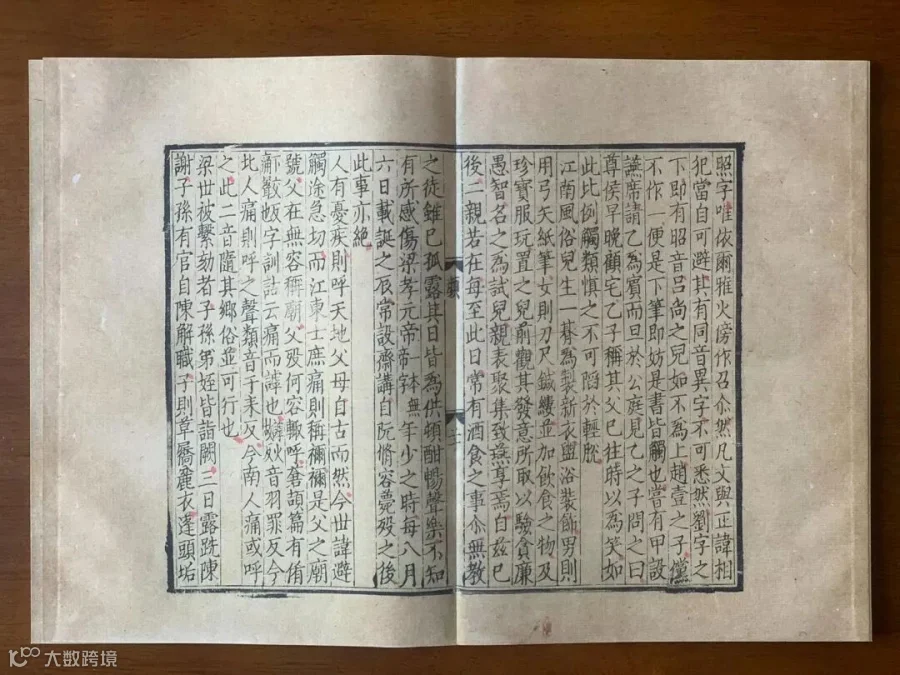 照字唯依爾雅火傍作召尒然凡文與正諱相
犯當自可避其有同音異字不可悉然劉字之
下即有昭音呂尚之兒如不為上趙壹之子儻
不作一便是下筆即妨是書皆觸也嘗有甲設
讌席請乙為賓而旦於公庭見乙之子問之曰
尊侯早晚顧宅乙子稱其父已往時以為笑如
此比例觸類慎之不可陷於輕脫
江南風俗兒生一朞為製新衣盥浴裝飾男則
用弓矢紙筆女則刀尺鍼縷並加飲食之物及
珍寶服玩置之兒前觀其發意所取以驗貪廉
愚智名之為試兒親表聚集致讌享焉自茲已
後二親若在每至此日常有酒食之事尒無教
之徒雖已孤露其日皆為供頓酣暢聲樂不知
有所感傷梁孝元帝一本無帝字年少之時每八月
六日載誕之辰常設齋講自阮脩容薨歿之後
此事亦絶
人有憂疾則呼天地父母自古而然今世諱避
觸途急切而江東士庶痛則稱禰禰是父之廟
號父在無容稱廟父歿何容輙呼蒼頡篇有侑
字訓詁云痛而謼也音羽罪反今
北人痛則呼之聲類音于耒反今南人痛或呼
之此二音隨其鄉俗並可行也
梁世被繫劾者子孫弟姪皆詣闕三日露跣陳
謝子孫有官自陳解職子則草屩麤衣蓬頭垢
大数跨境